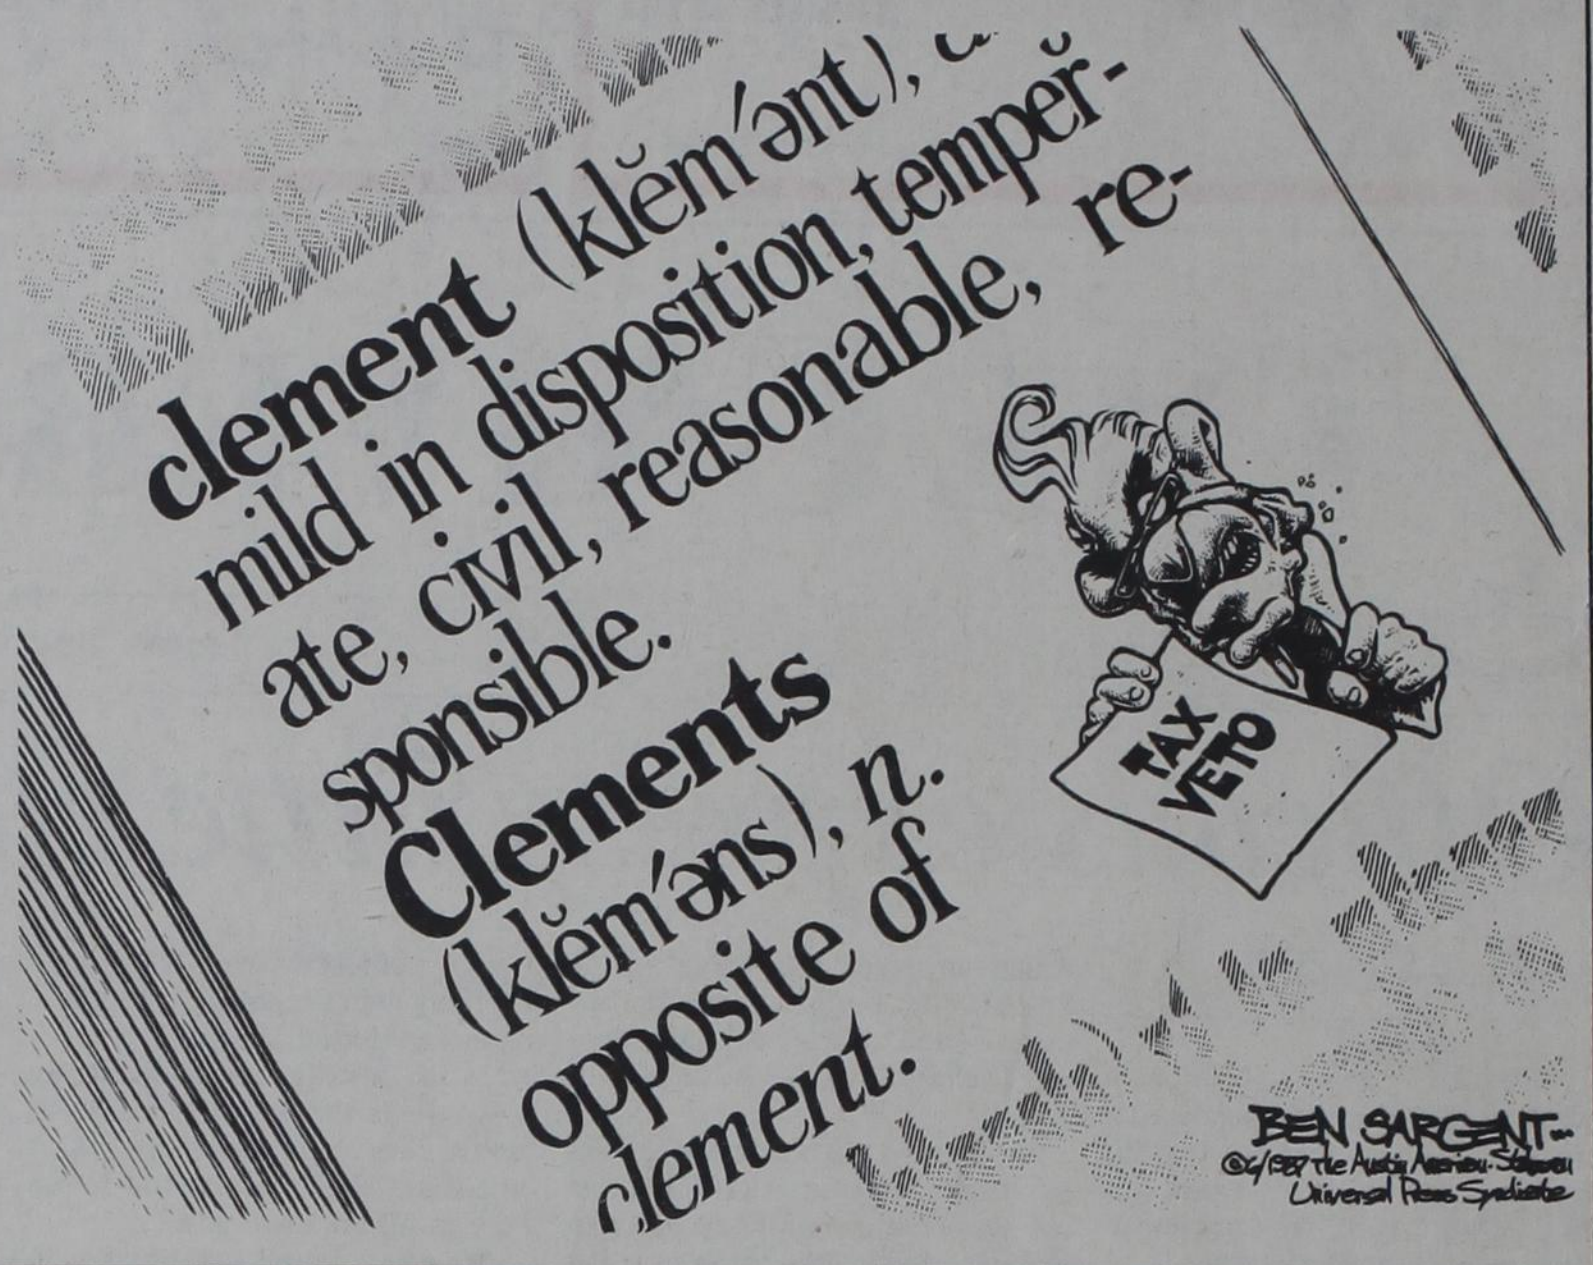 clement (klĕm′ənt),
mild in disposition, temper-
ate, civil, reasonable, re-
sponsible.
Clements
(klĕm′əns), n.
opposite of
clement.
TAX
VETO
BEN SARGENT
©6/1987 The Austin American-Statesman
Universal Press Syndicate